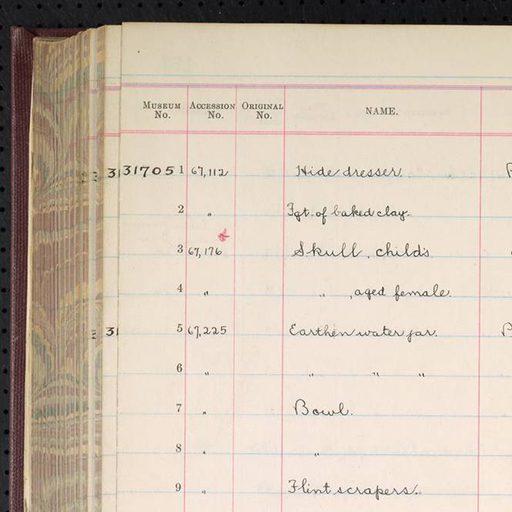 MUSEUM No. ACCESSION No. ORIGINAL No. NAME.
317051 67,112 Hide dresser.
2 " Fgt. of baked clay.
3 67,176 Skull, child's
4 " " , aged female.
5 67,225 Earthen water jar.
6 " " " "
7 " Bowl.
8 " "
9 " Flint scrapers.